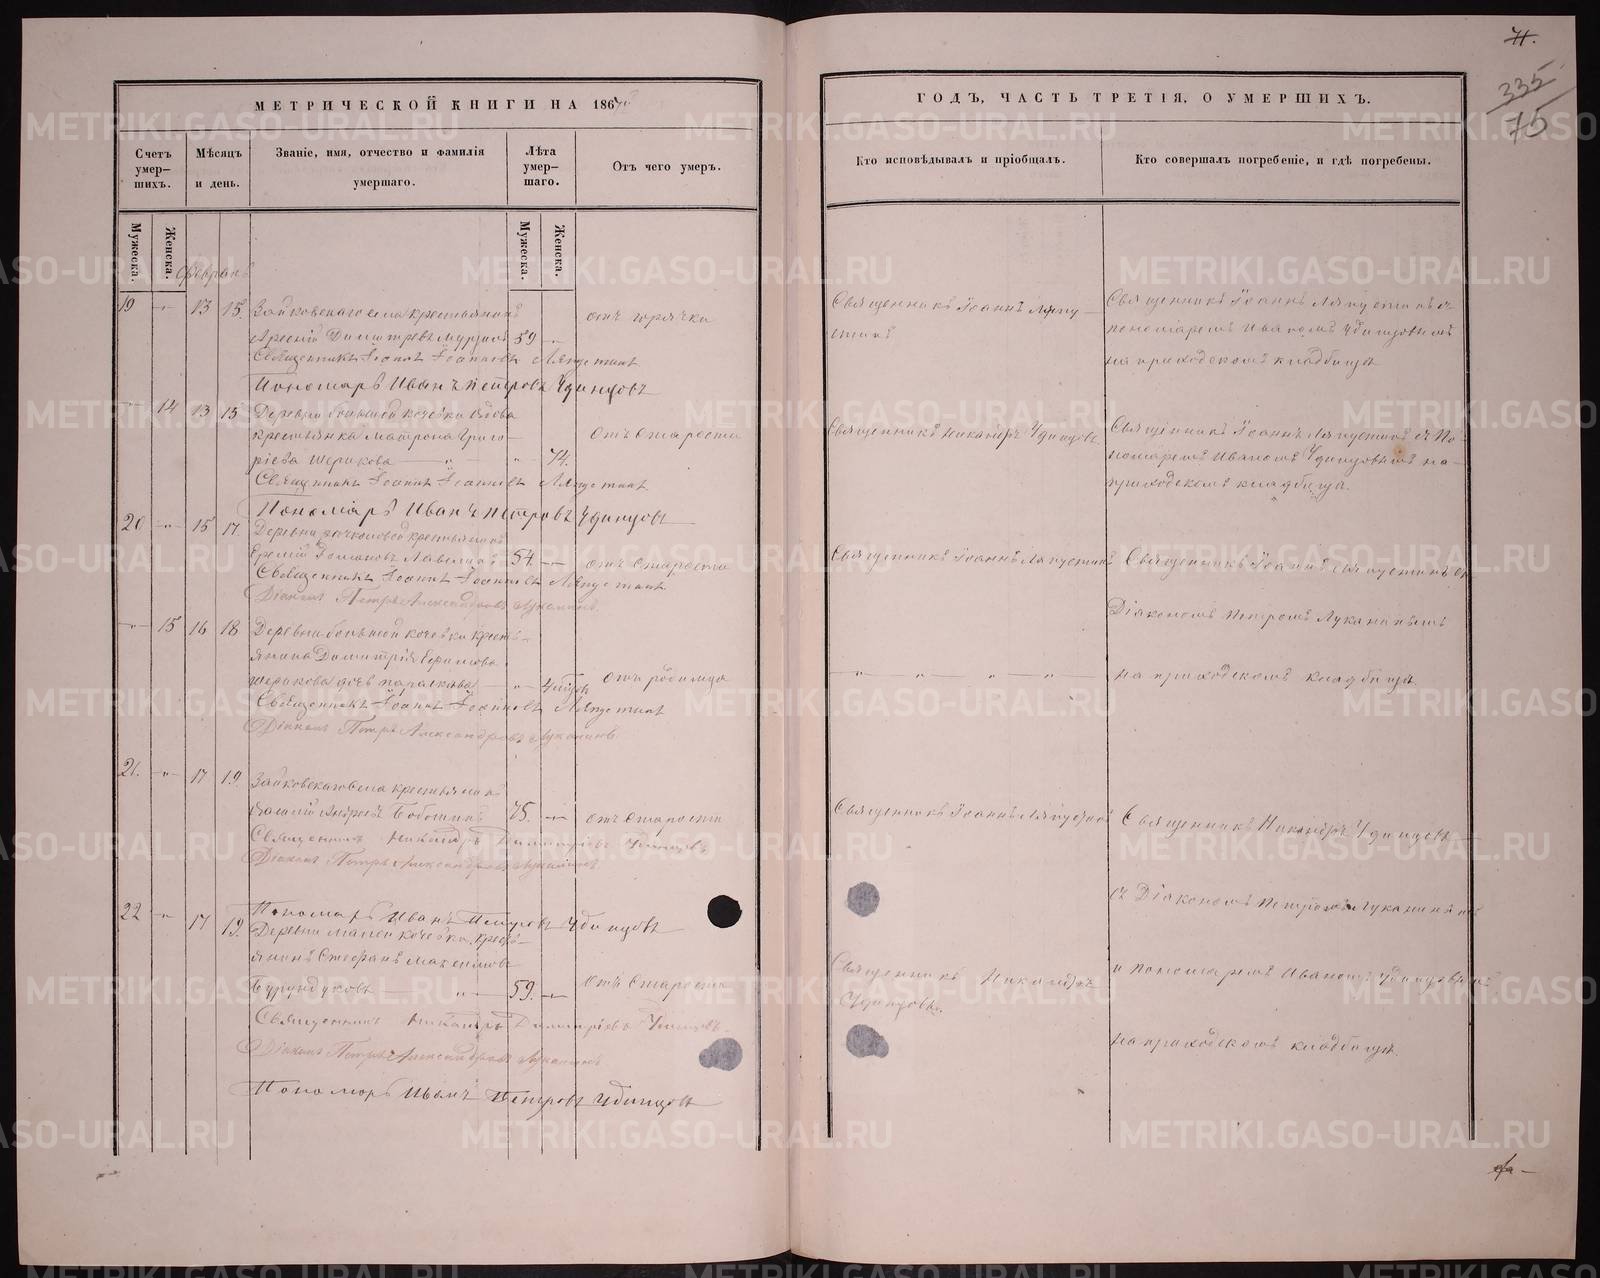 МЕТРИЧЕСКОЙ КНИГИ НА 186
ГОДЪ, ЧАСТЬ ТРЕТІЯ, О УМЕРШИХЪ.
71.
335
75
Счетъ умер–шихъ.
Мѣсяцъ и день.
Званіе, имя, отчество и фамилія умершаго.
Лѣта умер–шаго.
Отъ чего умеръ.
Кто исповѣдывалъ и пріобщалъ.
Кто совершалъ погребеніе, и гдѣ погребены.
Мужеска.
Женска.
Мужеска.
Женска.
19 13 15. Зайковскаго села крестьянинъ
Димитревъ 59
Священникъ Іоаннъ Іоанновъ Ляпустинъ
Пономарь Иванъ Петровъ Удинцовъ
отъ горячки
Священникъ Іоаннъ Ляпу–
стинъ
Священникъ Іоаннъ Ляпустинъ съ
пономаремъ Иваномъ Удинцовымъ
на приходскомъ кладбищѣ
14 13 15 Деревни большой кочевки вдова
крестьянка Матрона Григо–
рьева Шерикова 74.
Священникъ Іоаннъ Іоанновъ Ляпустинъ
Пономарь Иванъ Петровъ Удинцовъ
отъ старости
Священникъ Никандръ Удинцовъ
Священникъ Іоаннъ Ляпустинъ съ По–
номаремъ Иваномъ Удинцовымъ на
приходскомъ кладбищѣ.
20 15 17. Деревни крестьянинъ
54.
Священникъ Іоаннъ Іоанновъ Ляпустинъ
Діаконъ Петръ Александровъ Луканинъ
отъ старости
Священникъ Іоаннъ Ляпустинъ
Священникъ Іоаннъ Ляпустинъ съ
Діакономъ Петромъ Луканинымъ
15 16 18 Деревни большой кочевки кресть–
янина Димитрія Ефимова
Шерикова дочь
Священникъ Іоаннъ Іоанновъ Ляпустинъ
Діаконъ Петръ Александровъ Луканинъ
отъ родимца
на приходскомъ кладбищѣ
21. 17 19. Зайковскаго села крестьянинъ
75.
Священникъ Никандръ Димитріевъ Удинцовъ
Діаконъ Петръ Александровъ Луканинъ
Пономарь Иванъ Петровъ Удинцовъ
отъ старости
Священникъ Іоаннъ Ляпустинъ
Священникъ Никандръ Удинцовъ
съ Діакономъ Петромъ Луканинымъ
22 17 19. Деревни малой кочевки кресть–
янинъ Стефанъ Максимовъ
Бурундуковъ 59.
Священникъ Никандръ Димитріевъ Удинцовъ
Діаконъ Петръ Александровъ Луканинъ
Пономарь Иванъ Петровъ Удинцовъ
отъ старости
Священникъ Никандръ
Удинцовъ.
и пономаремъ Иваномъ Удинцовымъ
на приходскомъ кладбищѣ.
METRIKI.GASO-URAL.RU